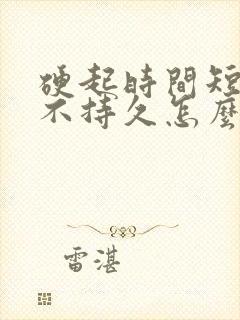 硬起時間短
不持久怎麼
雷湛